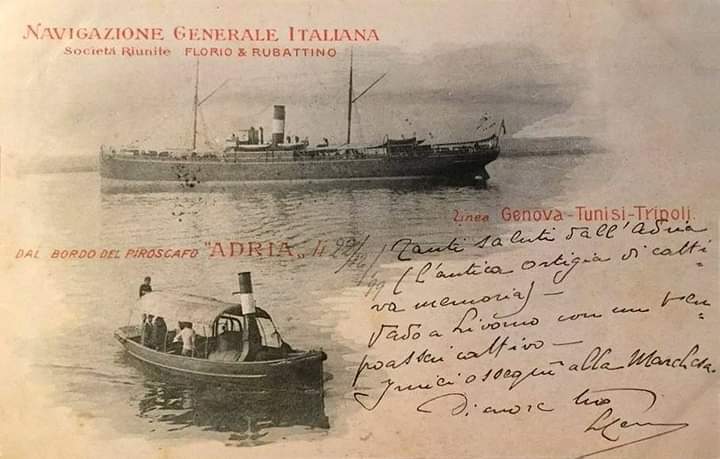 NAVIGAZIONE GENERALE ITALIANA
Società Riunite FLORIO & RUBATTINO
Linea Genova-Tunisi-Tripoli
DAL BORDO DEL PIROSCAFO "ADRIA„ li 22/12/99
Tanti saluti dall'Adria
(l'antica ostigia di catti-
va memoria) –
a Livorno con un
cattivo –
I miei ossequi alla Marchesa
Di cuore tuo